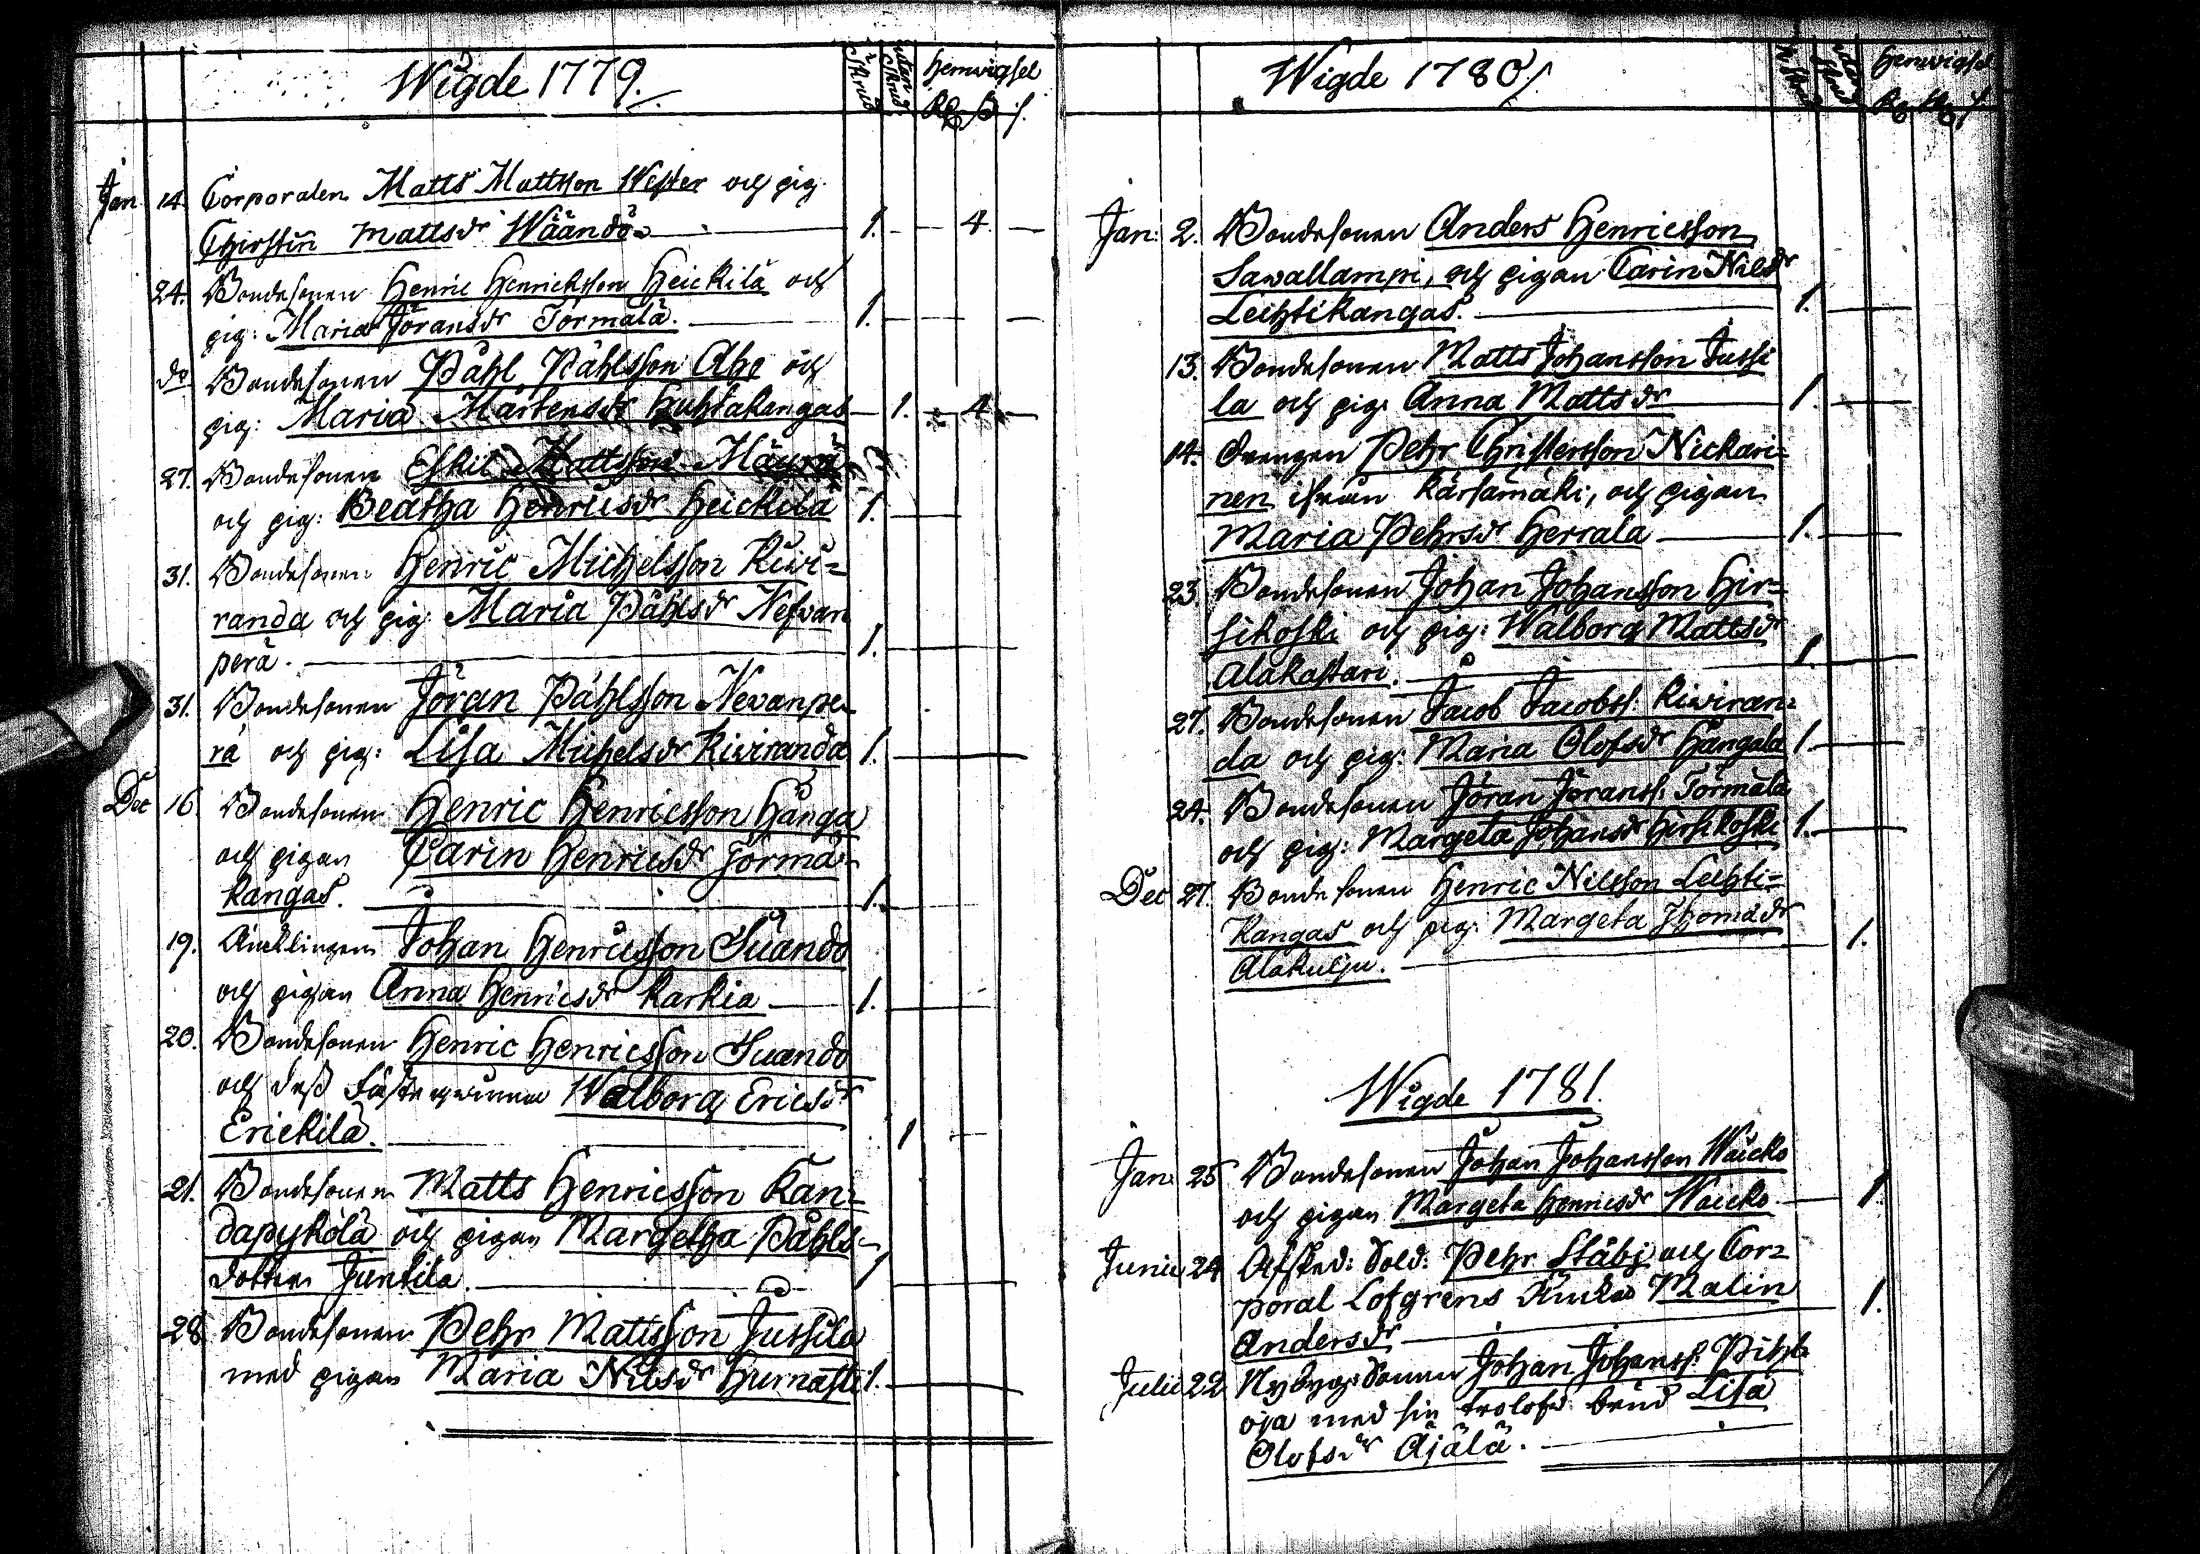 Wigde 1779.
i Skrud
utan Skrud
Hemvigsel
Jan 14. Corporalen Matts Mattsson Wester och pig.
Chirstin Mattsdr Wäändö 1. 4
24. Bondesonen Henric Henricksson Heickilä och
pig: Maria Jöransdr Törmälä. 1.
do Bondesonen Påhl Påhlsson Aho och
pig: Maria Mårtensdr Huhtakangas 1. 4
27. Bondesonen Eskil Mattsson Mäyrä
och pig: Beatha Henricsdr Heickilä 1.
31. Bondesonen Henric Michelsson Kiwi=
randa och pig: Maria Påhlsdr Nefvan
perä. 1.
31. Bondesonen Jöran Påhlsson Nevanpe
rä och pig: Lisa Michelsdr Kiwiranda 1.
Dec 16. Bondesonen Henric Henricsson Hånga
och pigan Carin Henricsdr Törmä=
kangas. 1.
19. Änklingen Johan Henricsson Suando
och pigan Anna Henricsdr Karkia 1.
20. Bondesonen Henric Henricsson Suando
och dess Fästeqwinna Walborg Ericsdr
Erickilä. 1
21. Bondesonen Matts Henricsson Kan=
dapykölä och pigan Margetha Påhls=
dotter Juntila. 1
28. Bondesonen Pehr Mattsson Jussila
med pigan Maria Nilsdr Hurnasti 1.
Wigde 1780.
Hemvigsel
Jan: 2. Bondesonen Anders Henricsson
Sawallampi, och pigan Carin Nilsdr
Leihtikangas. 1.
13. Bondesonen Matts Johansson Jussi
la och pig: Anna Mattsdr 1.
14. Drengen Pehr Christersson Nickari=
nen ifrån Kärsämäki, och pigan
Maria Pehrsdr Herrala 1.
23. Bondesonen Johan Johansson Hir=
sikoski och pig: Walborg Mattsdr
Alakastari. 1.
27. Bondesonen Jacob Jacobss: Kiwiran=
da och pig: Maria Olofsdr Hångala 1.
24. Bondesonen Jöran Jöranss: Törmälä
och pig: Margeta Johansdr Hirsikoski 1.
Dec 27. Bondesonen Henric Nilsson Leihti=
kangas och pig: Margeta Thomædr
Alakulju. 1.
Wigde 1781.
Jan: 25 Bondesonen Johan Johansson Waicko
och pigan Margeta Henricsdr Waicko 1.
Junii 24 Afsked: Sold: Pehr Ståbj och Cor=
poral Löfgrens Änka Malin
Andersdr 1.
Julii 22 Nybygg: Sonen Johan Johanss: Pihl
oja med sin trolofd: brud Lisa
Olofsdr Äjälä.